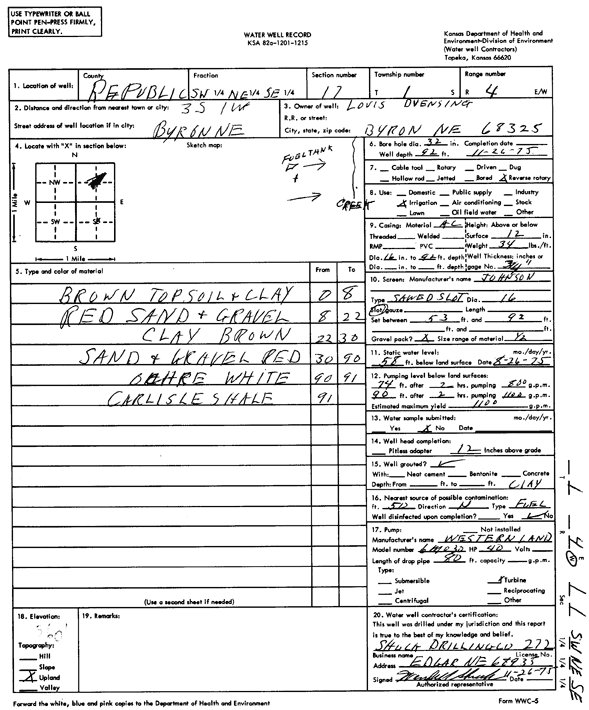 USE TYPEWRITER OR BALL
POINT PEN-PRESS FIRMLY,
PRINT CLEARLY.
WATER WELL RECORD
KSA 82a-1201-1215
Kansas Department of Health and
Environment-Division of Environment
(Water well Contractors)
Topeka, Kansas 66620
1. Location of well: County REPUBLIC Fraction SW 1/4 NE 1/4 SE 1/4 Section number 17 Township number T 1 S Range number R 4 E/W
2. Distance and direction from nearest town or city: 3S 1W
Street address of well location if in city: BYRON NE
3. Owner of well: LOUIS DUENSING
R.R. or street:
City, state, zip code: BYRON NE 68325
4. Locate with "X" in section below:
Sketch map:
N
NW NE
W E
SW SE
S
1 Mile
1 Mile
FUEL TANK
CREEK
6. Bore hole dia. 32 in. Completion date
Well depth 92 ft. 11-26-75
7. Cable tool Rotary Driven Dug
Hollow rod Jetted Bored X Reverse rotary
8. Use: Domestic Public supply Industry
X Irrigation Air conditioning Stock
Lawn Oil field water Other
9. Casing: Material A-C Height: Above or below
Threaded Welded Surface 12 in.
RMP PVC Weight 34 lbs./ft.
Dia. 16 in. to 92 ft. depth Wall Thickness: inches or
Dia. in. to ft. depth gage No. 3/4"
5. Type and color of material From To
BROWN TOPSOIL & CLAY 0 8
RED SAND & GRAVEL 8 22
CLAY BROWN 22 30
SAND & GRAVEL RED 30 90
WHITE 90 91
CARLISLE SHALE 91
(Use a second sheet if needed)
10. Screen: Manufacturer's name JOHNSON
Type SAWED SLOT Dia. 16
Slot/gauze Length
Set between 53 ft. and 92 ft.
ft. and ft.
Gravel pack? X Size range of material 1/2
11. Static water level: mo./day/yr.
58 ft. below land surface Date 8-26-75
12. Pumping level below land surfaces:
74 ft. after 2 hrs. pumping 800 g.p.m.
90 ft. after 2 hrs. pumping 1100 g.p.m.
Estimated maximum yield 1100 g.p.m.
13. Water sample submitted: mo./day/yr.
Yes X No Date
14. Well head completion:
Pitless adapter 12 Inches above grade
15. Well grouted? ✓
With: Neat cement Bentonite Concrete
Depth: From ft. to ft. CLAY
16. Nearest source of possible contamination:
ft. 50 Direction N Type FUEL
Well disinfected upon completion? Yes ✓ No
17. Pump: Not installed
Manufacturer's name WESTERN LAND
Model number HP 40 Volts
Length of drop pipe 80 ft. capacity g.p.m.
Type:
Submersible X Turbine
Jet Reciprocating
Centrifugal Other
18. Elevation:
Topography:
Hill
Slope
X Upland
Valley
19. Remarks:
20. Water well contractor's certification:
This well was drilled under my jurisdiction and this report
is true to the best of my knowledge and belief.
DRILLING CO 272
Business name License No.
Address EDGAR NE 68935
Signed Date 11-26-75
Authorized representative
Forward the white, blue and pink copies to the Department of Health and Environment
Form WWC-5
T
R
E
W
4
Sec
1/4 1/4 1/4
SW NE SE